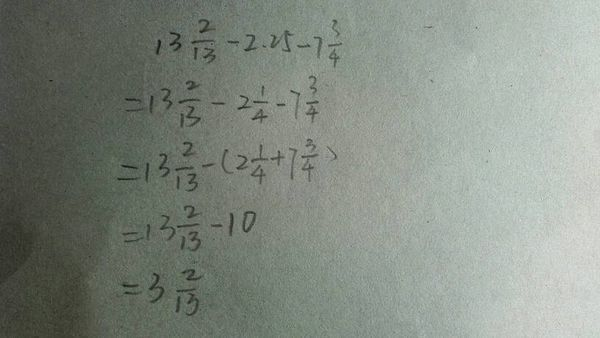 13 2/13 - 2.25 - 7 3/4
= 13 2/13 - 2 1/4 - 7 3/4
= 13 2/13 - (2 1/4 + 7 3/4)
= 13 2/13 - 10
= 3 2/13